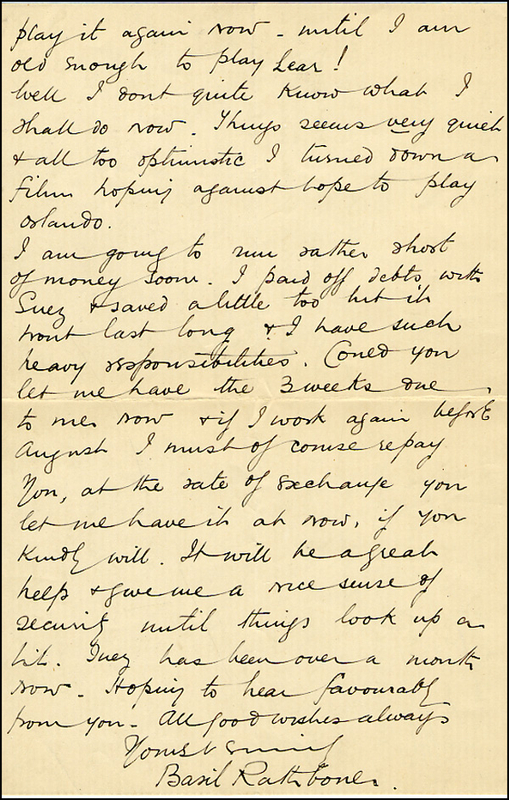 play it again now - until I am
old enough to play Lear!
Well I dont quite know what I
shall do now. Things seems very quiet
& all too optimistic I turned down a
film hoping against hope to play
Orlando.
I am going to run rather short
of money soon. I paid off debts with
Suez & saved a little too but it
wont last long & I have such
heavy responsibilities. Could you
let me have the 3 weeks due
to me now & if I work again before
August I must of course repay
You, at the rate of exchange you
let me have it at now, if you
kindly will. It will be a great
help & give me a nice sense of
security until things look up a
bit. has been over a month
now. Hoping to hear favourably
from you. All good wishes always
Yours
Basil Rathbone.